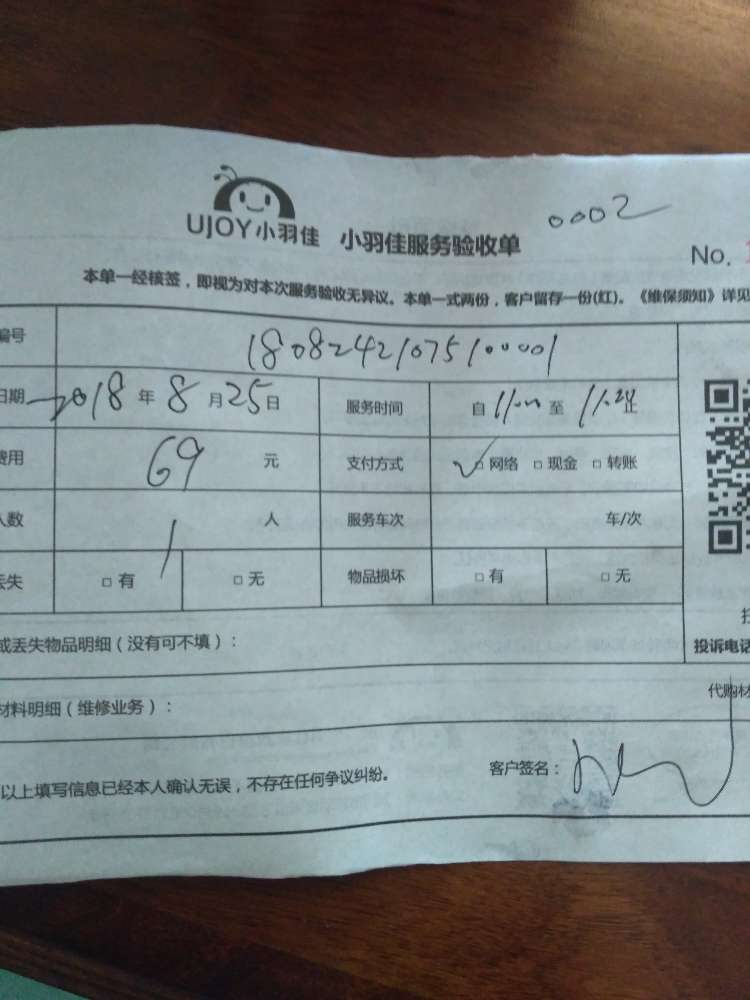 UJOY小羽佳 小羽佳服务验收单 0002
No.
本单一经核签，即视为对本次服务验收无异议。本单一式两份，客户留存一份(红)。《维保须知》详见
编号 18082421075100001
日期 2018 年 8 月 25 日 服务时间 自 11:00 至 11:24 止
费用 69 元 支付方式 ✓□ 网络 □ 现金 □ 转账
人数 1 人 服务车次 车/次
丢失 □ 有 □ 无 物品损坏 □ 有 □ 无
或丢失物品明细（没有可不填）： 投诉电话
材料明细（维修业务）： 代购材
以上填写信息已经本人确认无误，不存在任何争议纠纷。 客户签名：